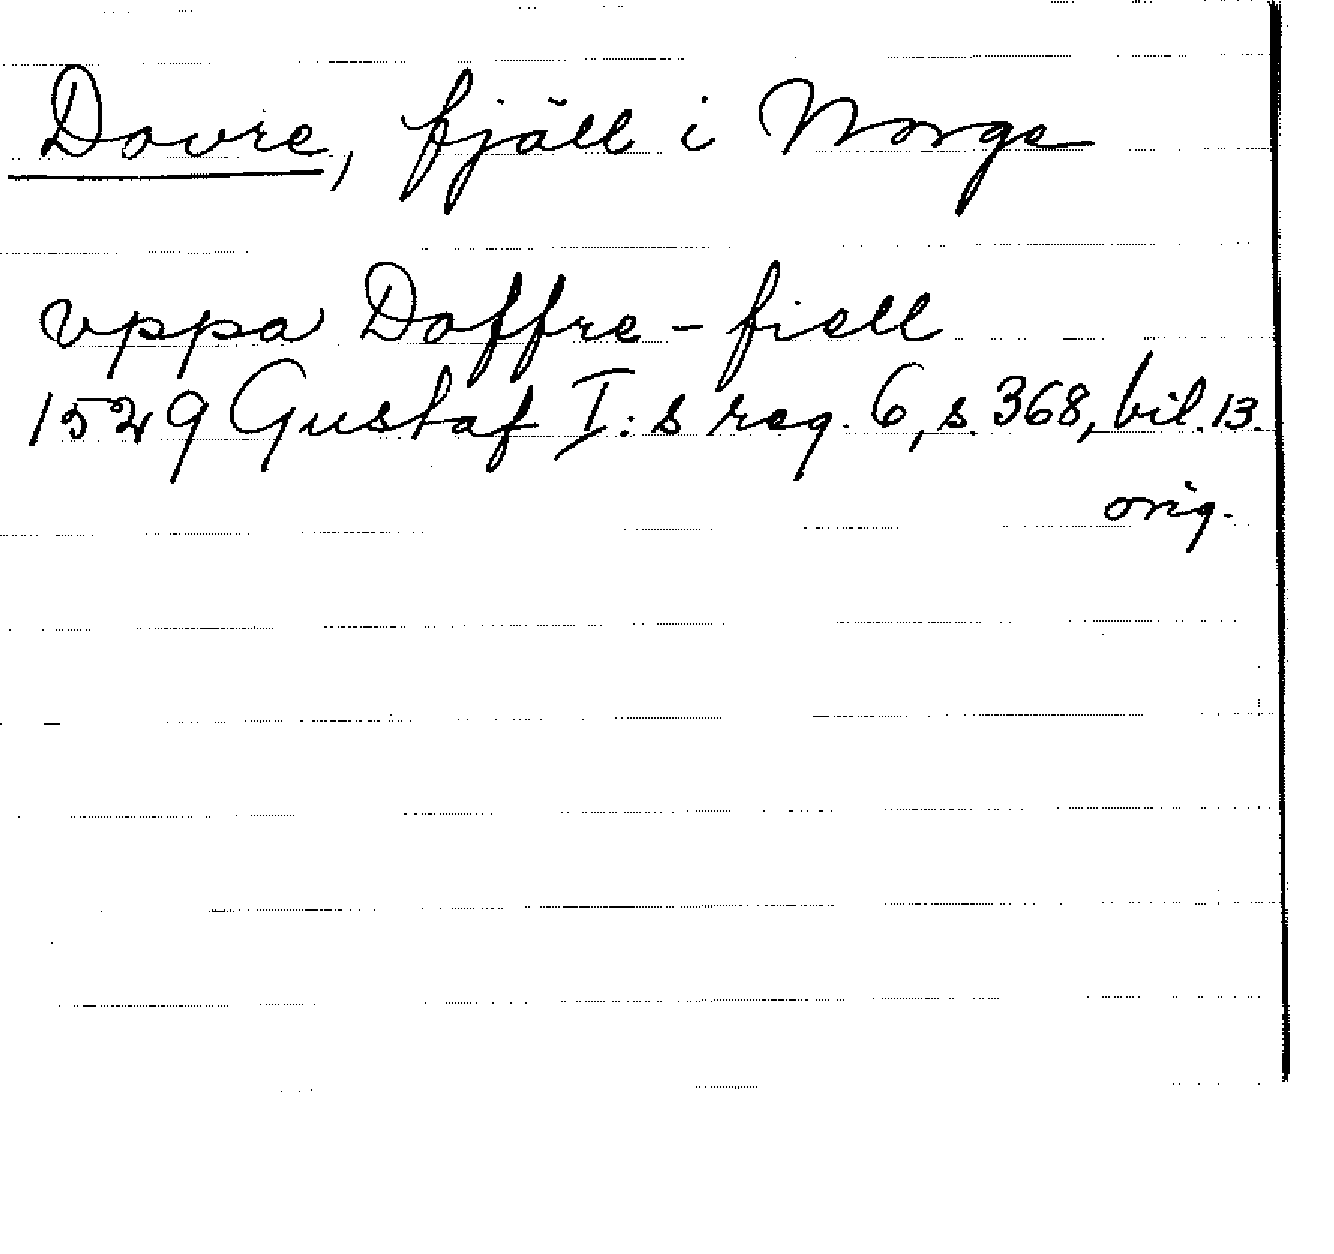 Dovre, fjäll i Norge
vppa Doffre-fiell
1529 Gustaf I:s reg. 6, s. 368, bil. 13.
orig.